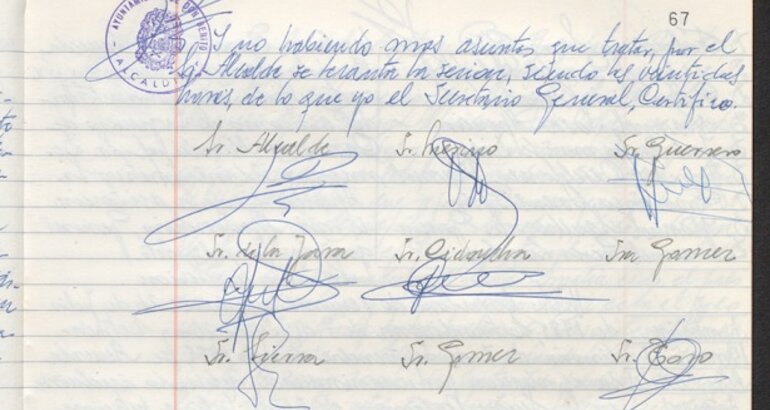 67
AYUNTAMIENTO DE DON BENITO
ALCALDIA
Y no habiendo mas asuntos que tratar, por el
Sr. Alcalde se levanta la sesion, siendo las veintidos
horas, de lo que yo el Secretario General, Certifico.
Sr. Alcalde Sr. Sr. Guerrero
Sr. de la Jara Sr. Cidoncha Sra Gomez
Sr. Sierra Sr. Gomez Sr.